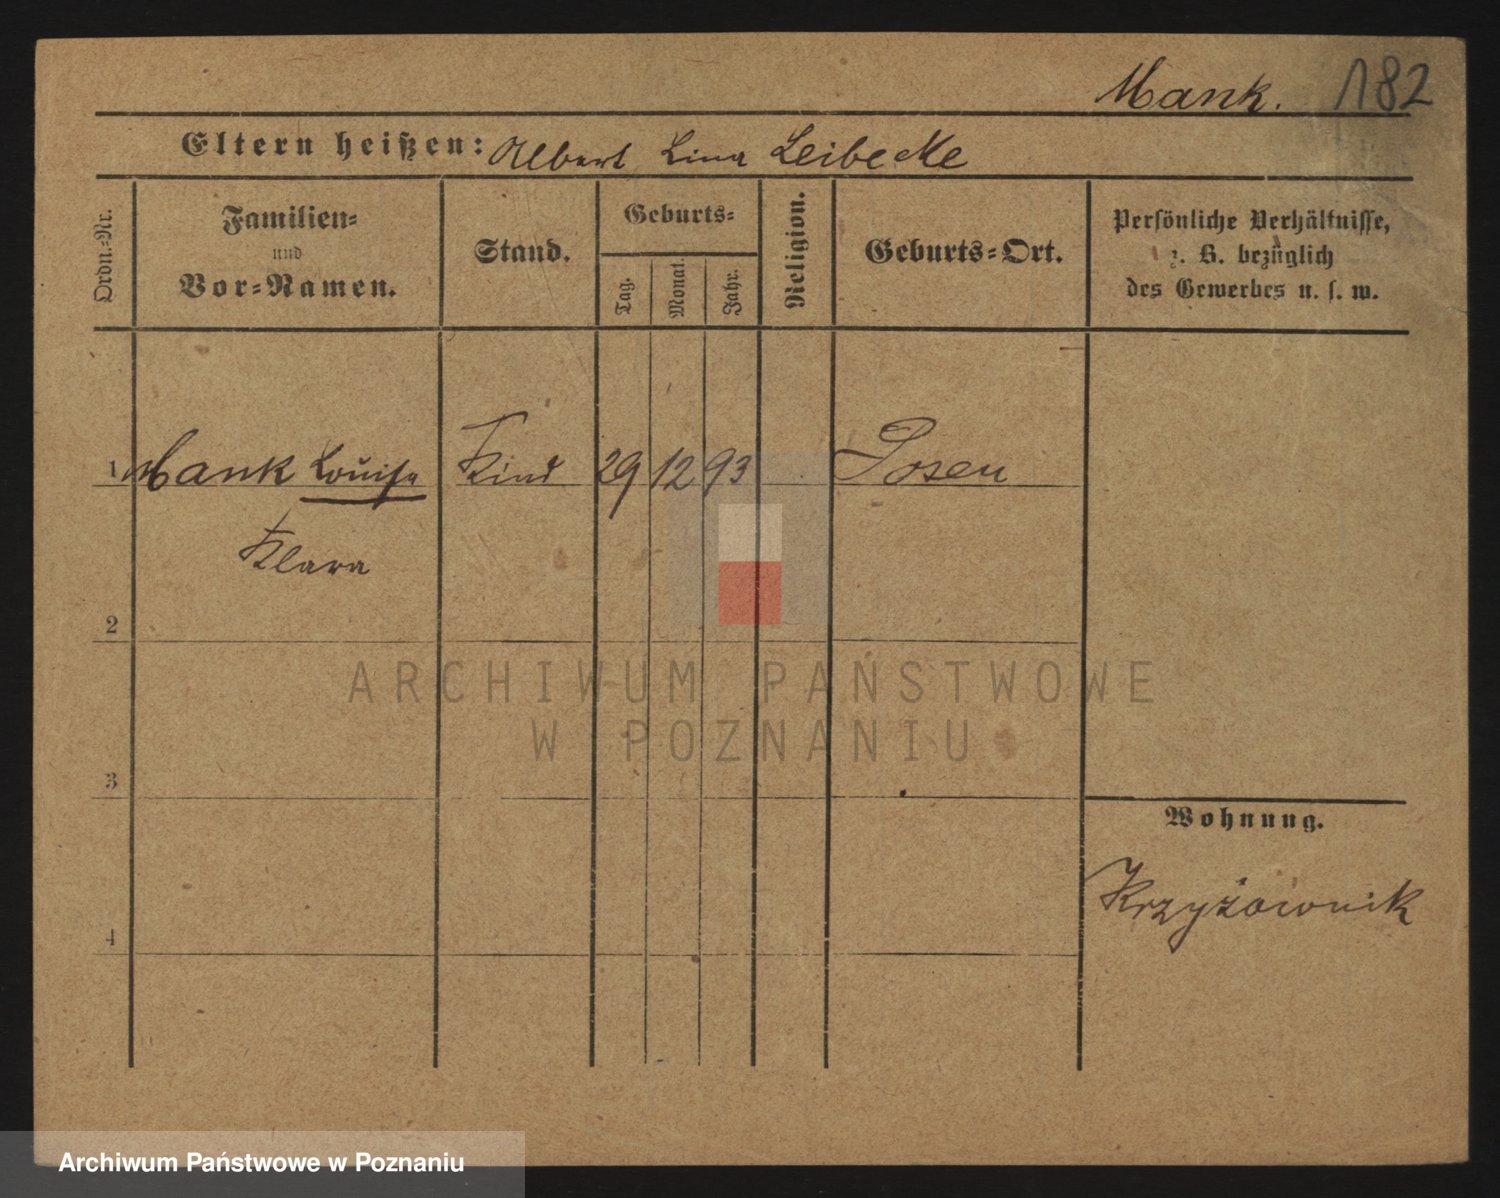 Mank. 182
Eltern heißen: Albert Lina Leibecke
Ordn.-Nr.
Familien-
und
Vor-Namen.
Stand.
Geburts-
Tag.
Monat.
Jahr.
Religion.
Geburts-Ort.
Persönliche Verhältnisse,
z. B. bezüglich
des Gewerbes u. s. w.
1 Mank Louise Kind 29 12 93 Posen
Klara
2
3
4
Wohnung.
Krzyżownik
ARCHIWUM PAŃSTWOWE
W POZNANIU
Archiwum Państwowe w Poznaniu